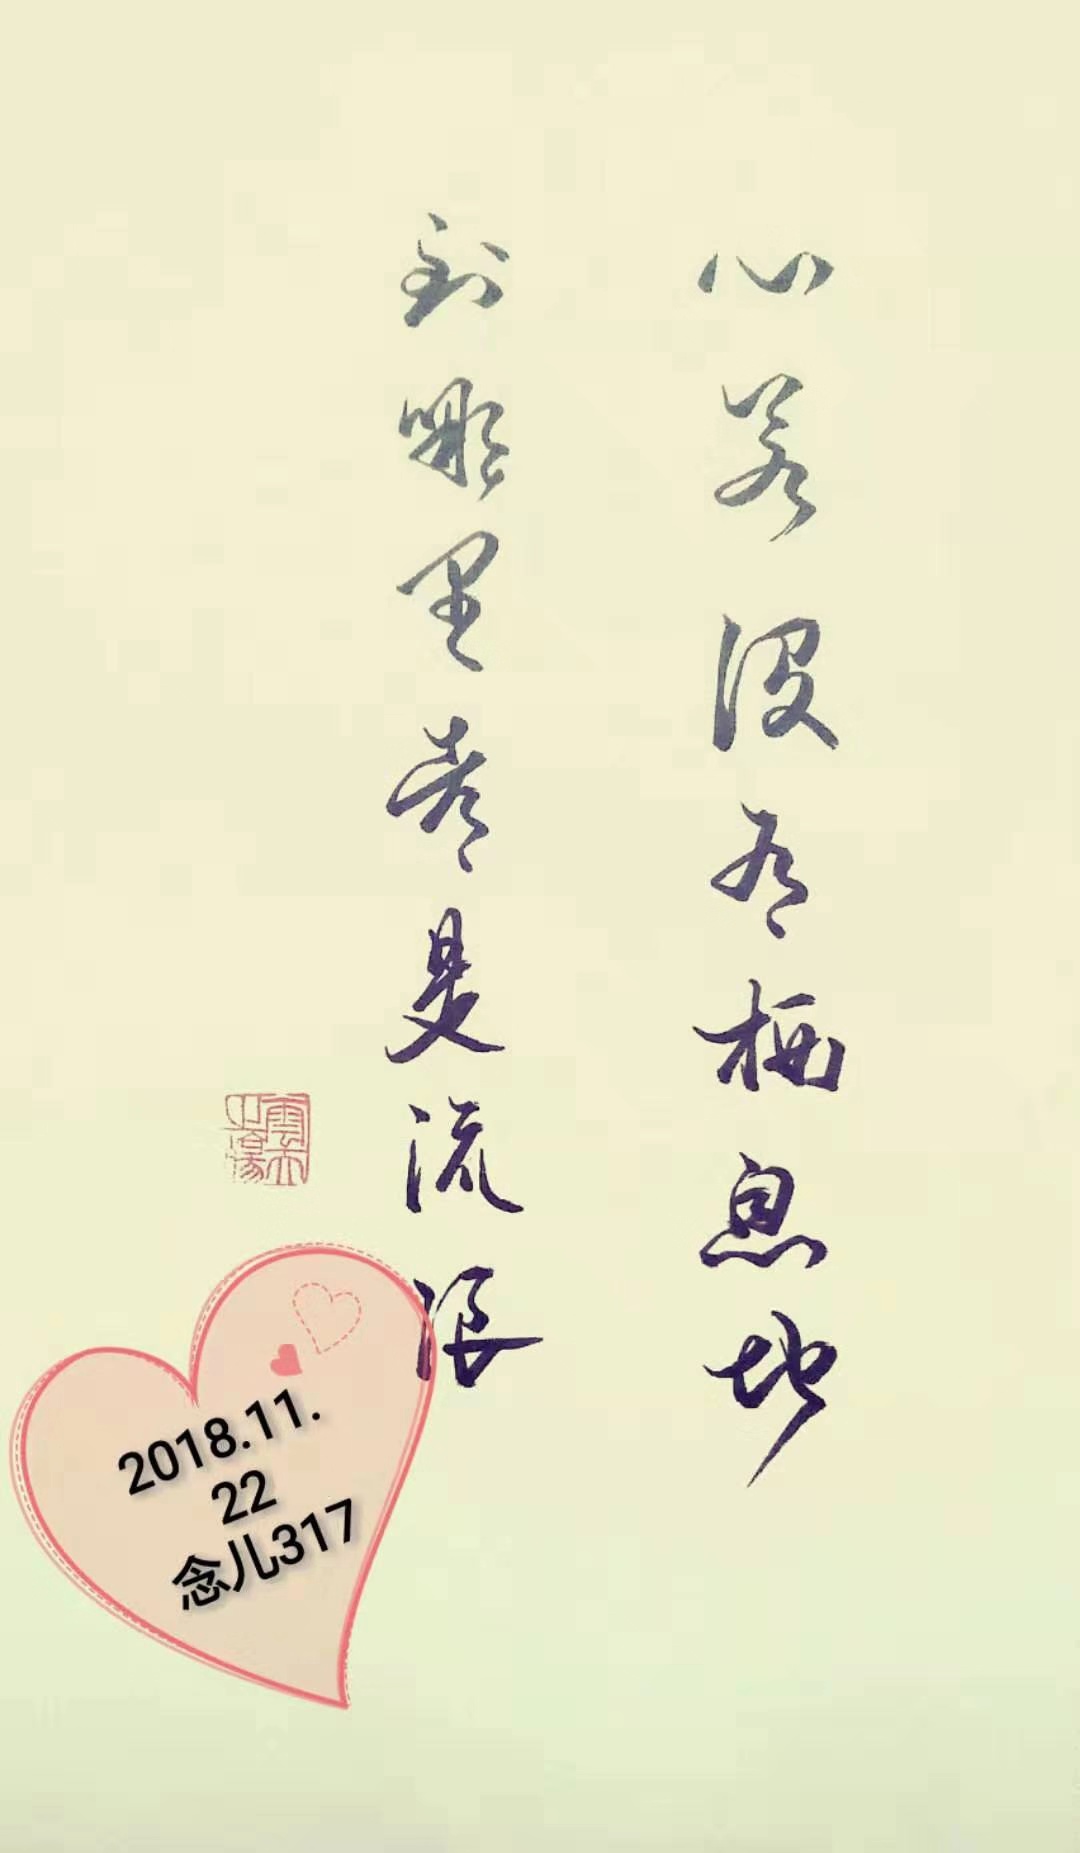 心若没有栖息地
到哪里都是流浪
2018.11.
22
念儿317